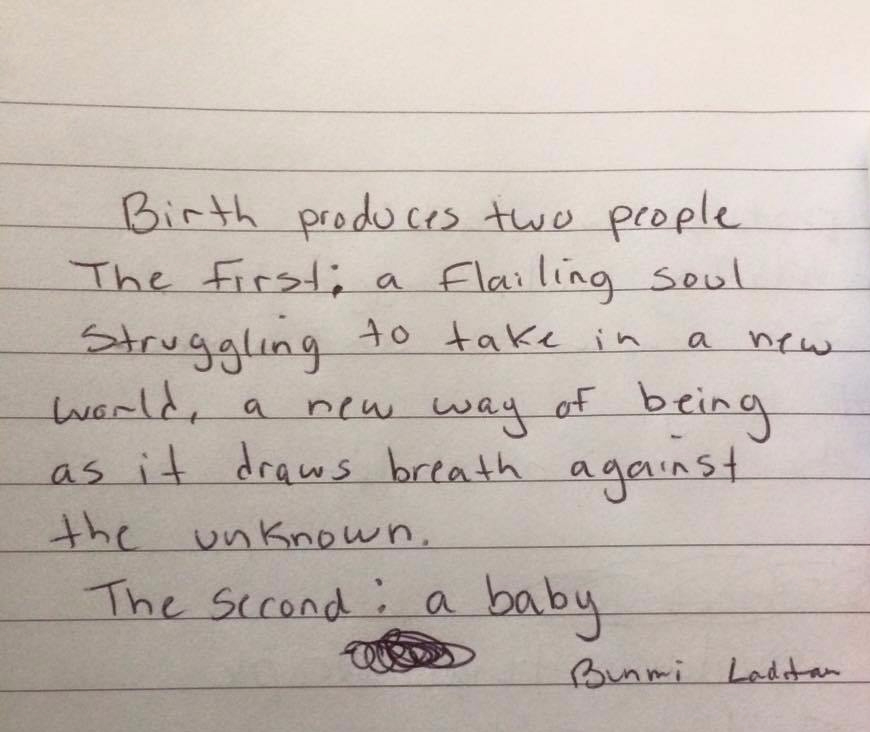 Birth produces two people
The first: a flailing soul
struggling to take in a new
world, a new way of being
as it draws breath against
the unknown.
The second: a baby
Bunmi Laditan